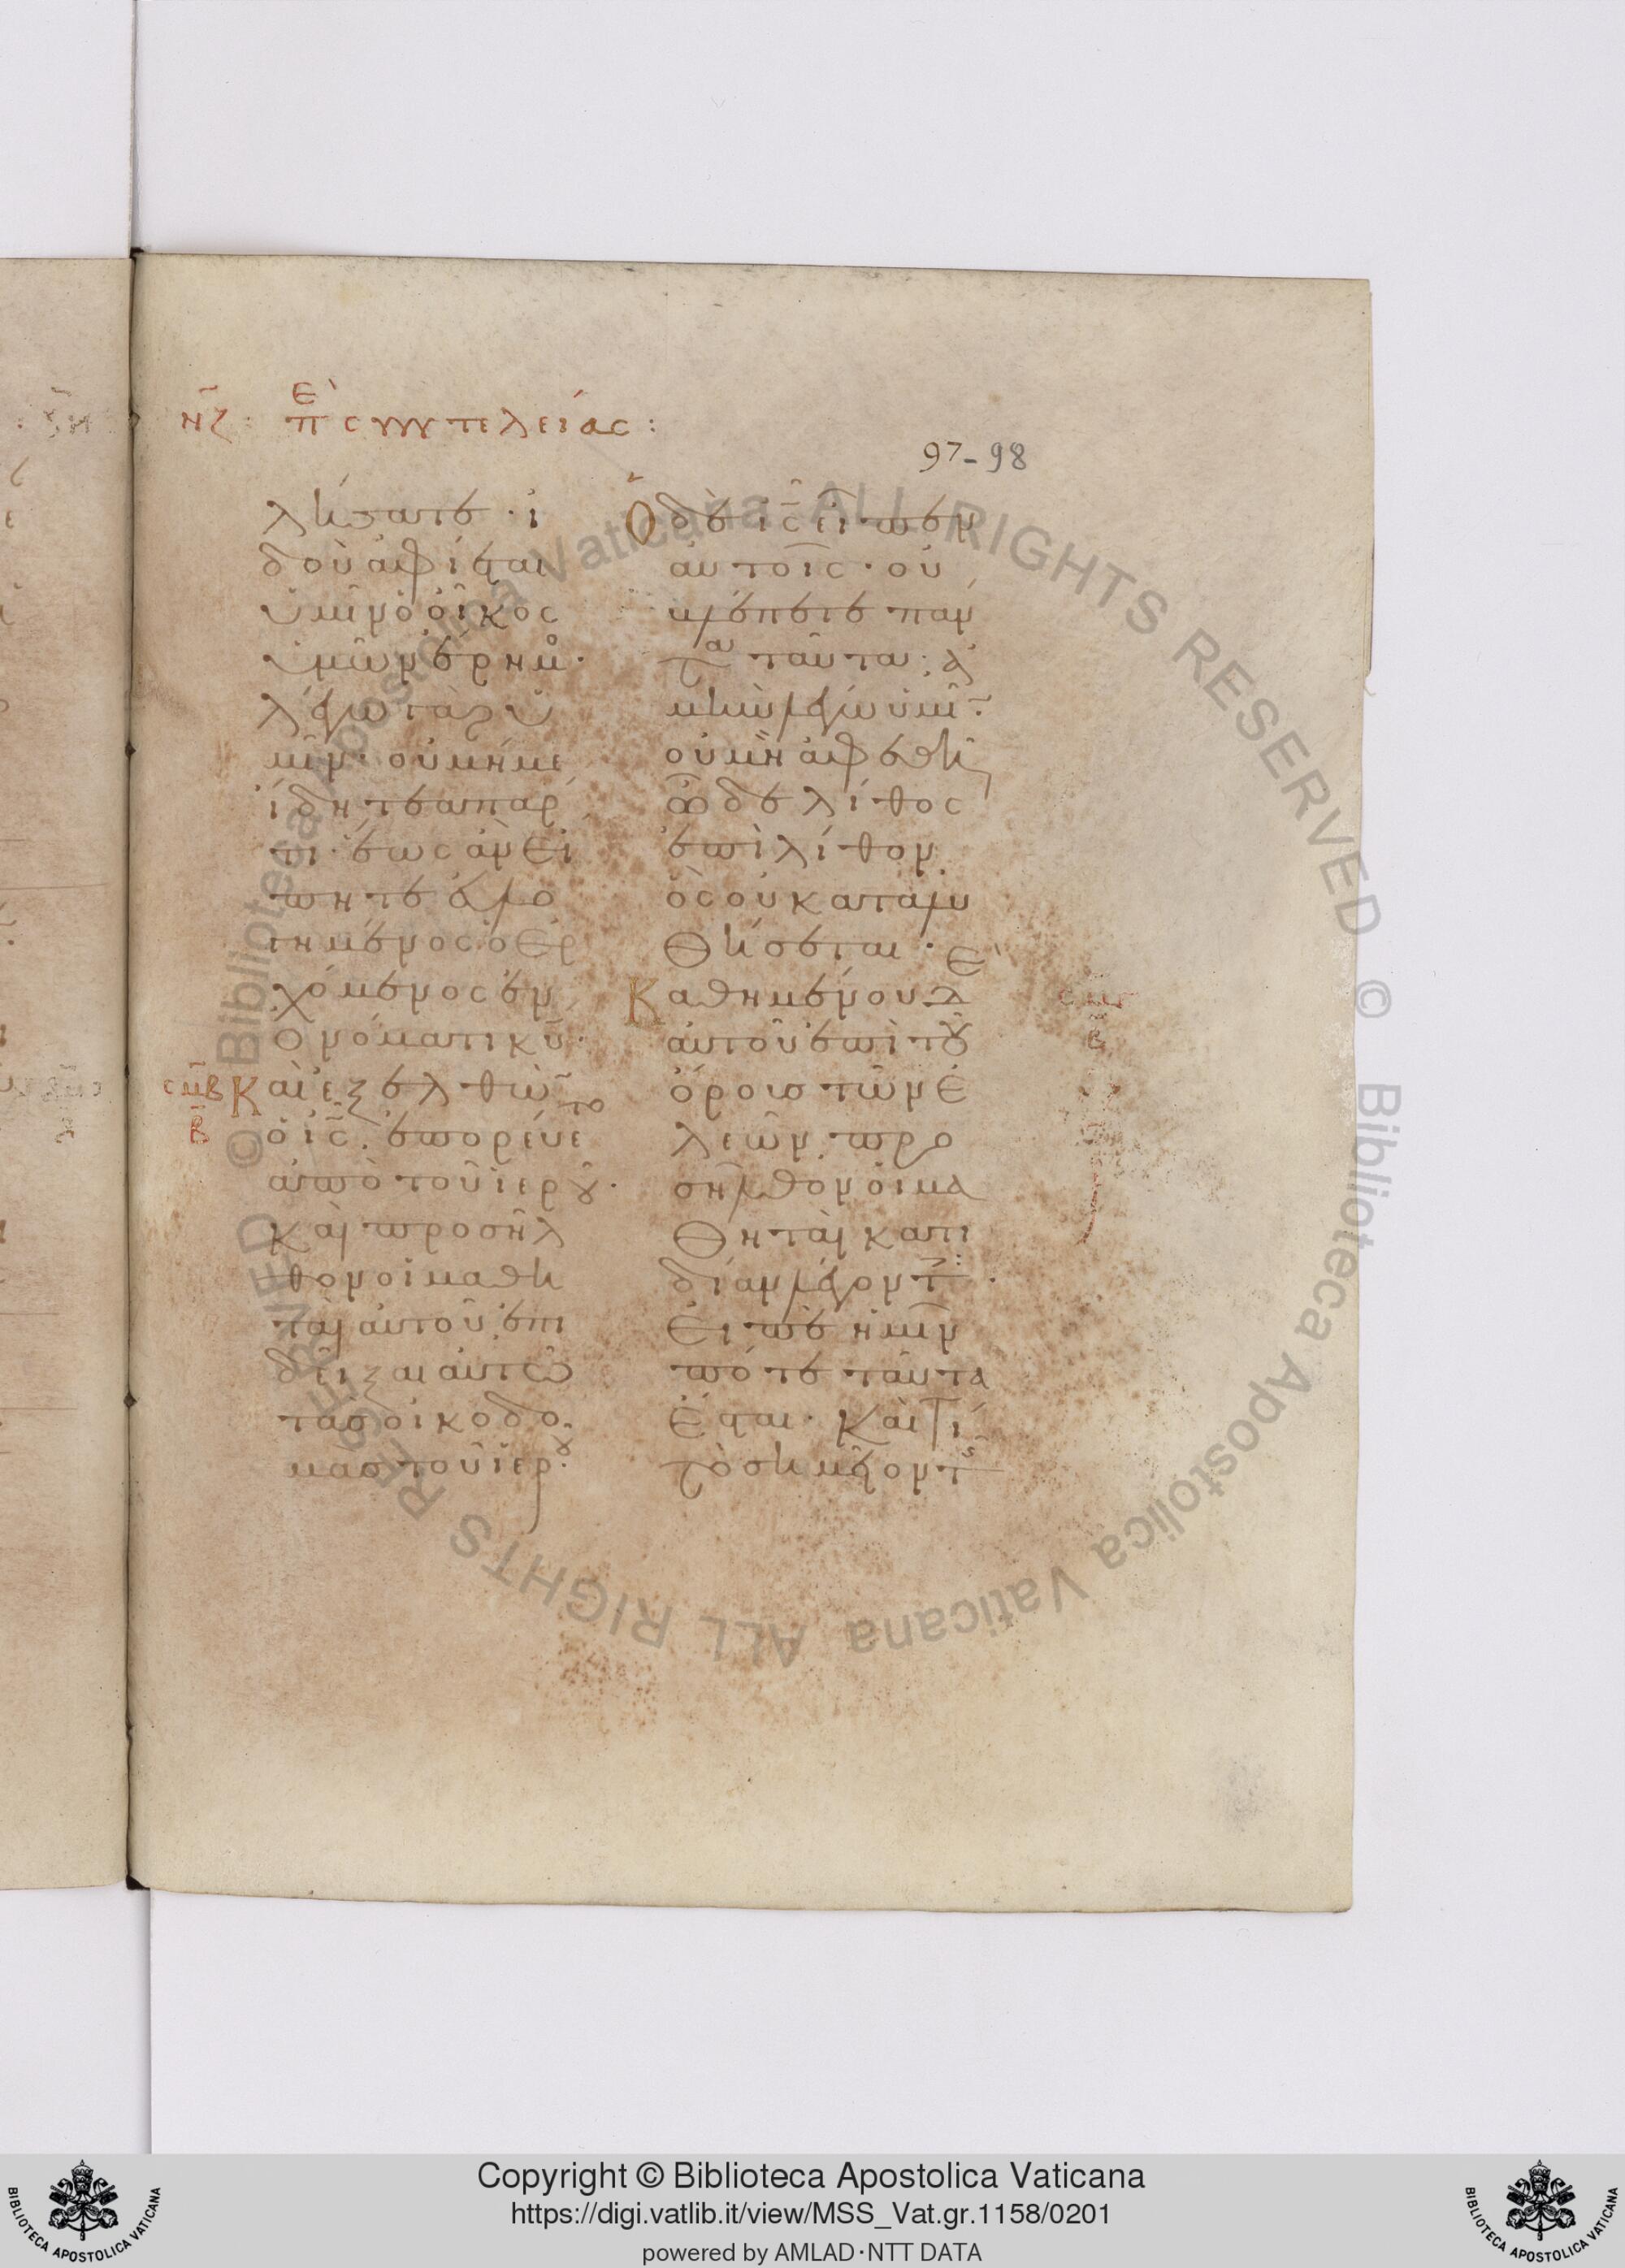 νζ: περὶ συντελείας:
97-98
λήσατε · ἰ
δοὺ ἀφίεται
ὑμῖν ὁ οἶκος
ὑμῶν ἔρημο·
λέγω γὰρ ὑ
μῖν· οὐ μή με
ἴδητε ἀπ' ἄρ
τι· ἕως ἂν εἴ
πητε εὐλο
γημένος ὁ ἐρ
χόμενος ἐν
ὀνόματι κυ·
σμβ Καὶ ἐξελθὼν
β ὁ ις· ἐπορεύετο
ἀπὸ τοῦ ἱεροῦ·
καὶ προσῆλ
θον οἱ μαθη
ταὶ αὐτοῦ ἐπι
δεῖξαι αὐτῶ
τὰς οἰκοδο
μὰς τοῦ ἱεροῦ·
Ὁ δὲ ις εἶπεν
αὐτοῖς· οὐ
βλέπετε πάν
τα ταῦτα· ἀ
μὴν λέγω ὑμῖν·
οὐ μὴ ἀφεθῆ
ὧδε λίθος
ἐπὶ λίθον
ὃς οὐ καταλυ
θήσεται ·
Καθημένου δὲ
αὐτοῦ ἐπὶ τοῦ
ὄρους τῶν ἐ
λεῶν· προ
σῆλθον οἱ μα
θηταὶ κατι
δίαν λέγοντες·
εἰπὲ ἡμῖν
πότε ταῦτα
ἔσται· καὶ τί
τὸ σημεῖον τῆς
Copyright © Biblioteca Apostolica Vaticana
https://digi.vatlib.it/view/MSS_Vat.gr.1158/0201
powered by AMLAD·NTT DATA